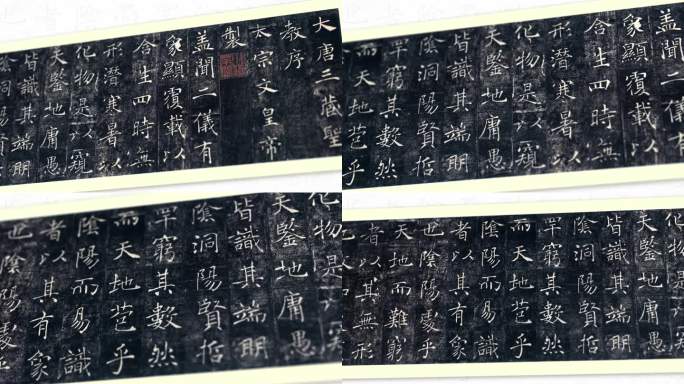 大唐三藏聖
教序
太宗文皇帝
製
盖聞二儀有
象顯覆載以
含生四時無
形潛寒暑以
化物是以窺
天鑒地庸愚
皆識其端明
陰洞陽賢
聞二儀有
象顯覆載以
含生四時無
形潛寒暑以
化物是以窺
天鑒地庸愚
皆識其端明
陰洞陽賢哲
罕窮其數然
而天地苞乎
化物是以窺
天鑒地庸愚
皆識其端明
陰洞陽賢哲
罕窮其數然
而天地苞乎
陰陽而易識
者以其有象
也陰陽處乎
化物是以窺
天鑒地庸愚
皆識其端明
陰洞陽賢哲
罕窮其數然
而天地苞乎
陰陽而易識
者以其有象
也陰陽處乎
天地而難窮
者以其無形